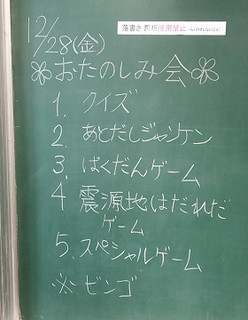 落書き
12/28(金)
おたのしみ会
1. クイズ
2. あとだしジャンケン
3. ばくだんゲーム
4 震源地はだれだ
ゲーム
5. スペシャルゲーム
※ ビンゴ